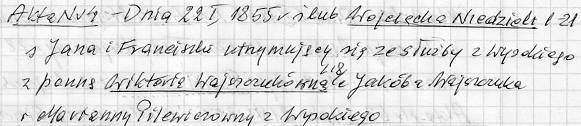 Akta Nr 4 - Dnia 22 I 1855 r ślub Wojciecha Niedzieli l 21
s Jana i Franciszki utrzymujący się ze służby z Wysokiego
z panną Wiktorią Wajszczukówną c Jakóba Wajszczuka
l 18
i Marianny Pilewiczowny z Wysokiego